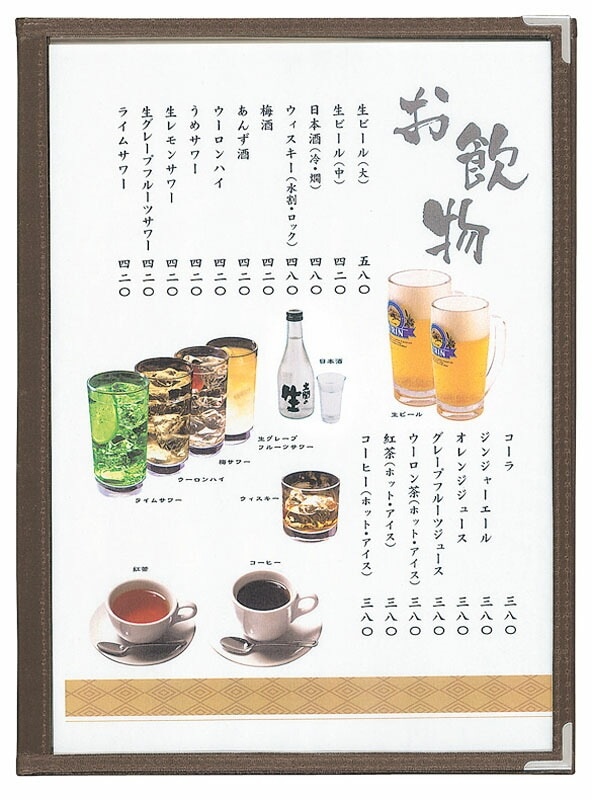 お飲物
生ビール(大) 五八〇
生ビール(中) 四二〇
日本酒(冷・燗) 四八〇
ウィスキー(水割・ロック) 四八〇
梅酒 四二〇
あんず酒 四二〇
ウーロンハイ 四二〇
うめサワー 四二〇
生レモンサワー 四二〇
生グレープフルーツサワー 四二〇
ライムサワー 四二〇
KIRIN
RIN
生ビール
日本酒
生
生グレープ
フルーツサワー
梅サワー
ウーロンハイ
ライムサワー
ウィスキー
コーラ 三八〇
ジンジャーエール 三八〇
オレンジジュース 三八〇
グレープフルーツジュース 三八〇
ウーロン茶(ホット・アイス) 三八〇
紅茶(ホット・アイス) 三八〇
コーヒー(ホット・アイス) 三八〇
紅茶
コーヒー